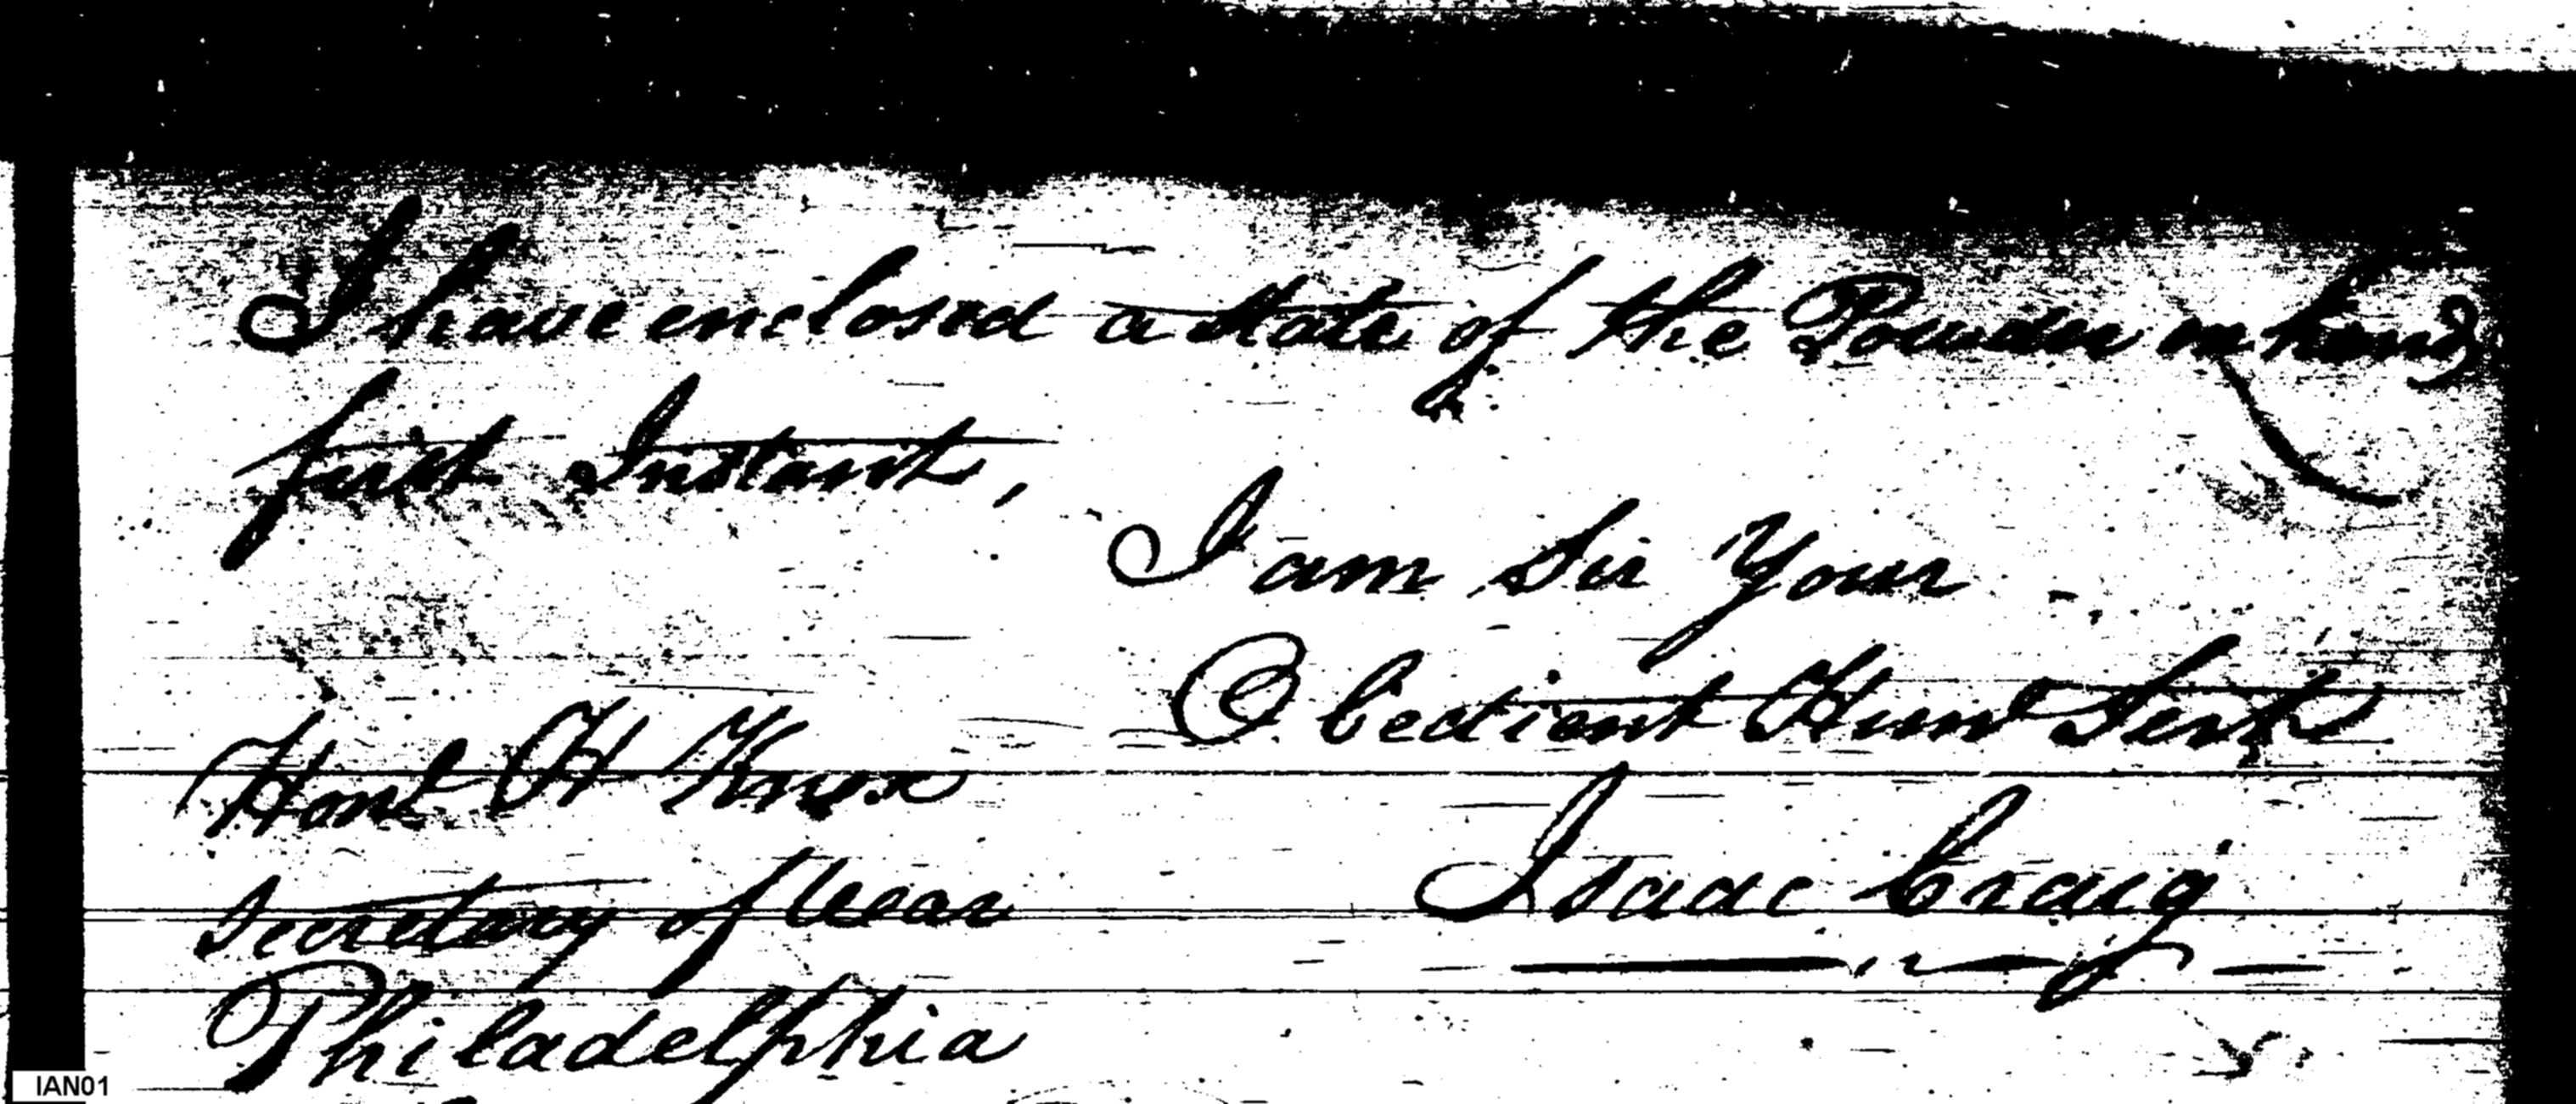 I have enclosed a state of the Powder on hand
first Instant,
I am Sir Your
Obedient Huml Servt
Honl H Knox
Isaac Craig
Secretary of War
Philadelphia
IAN01